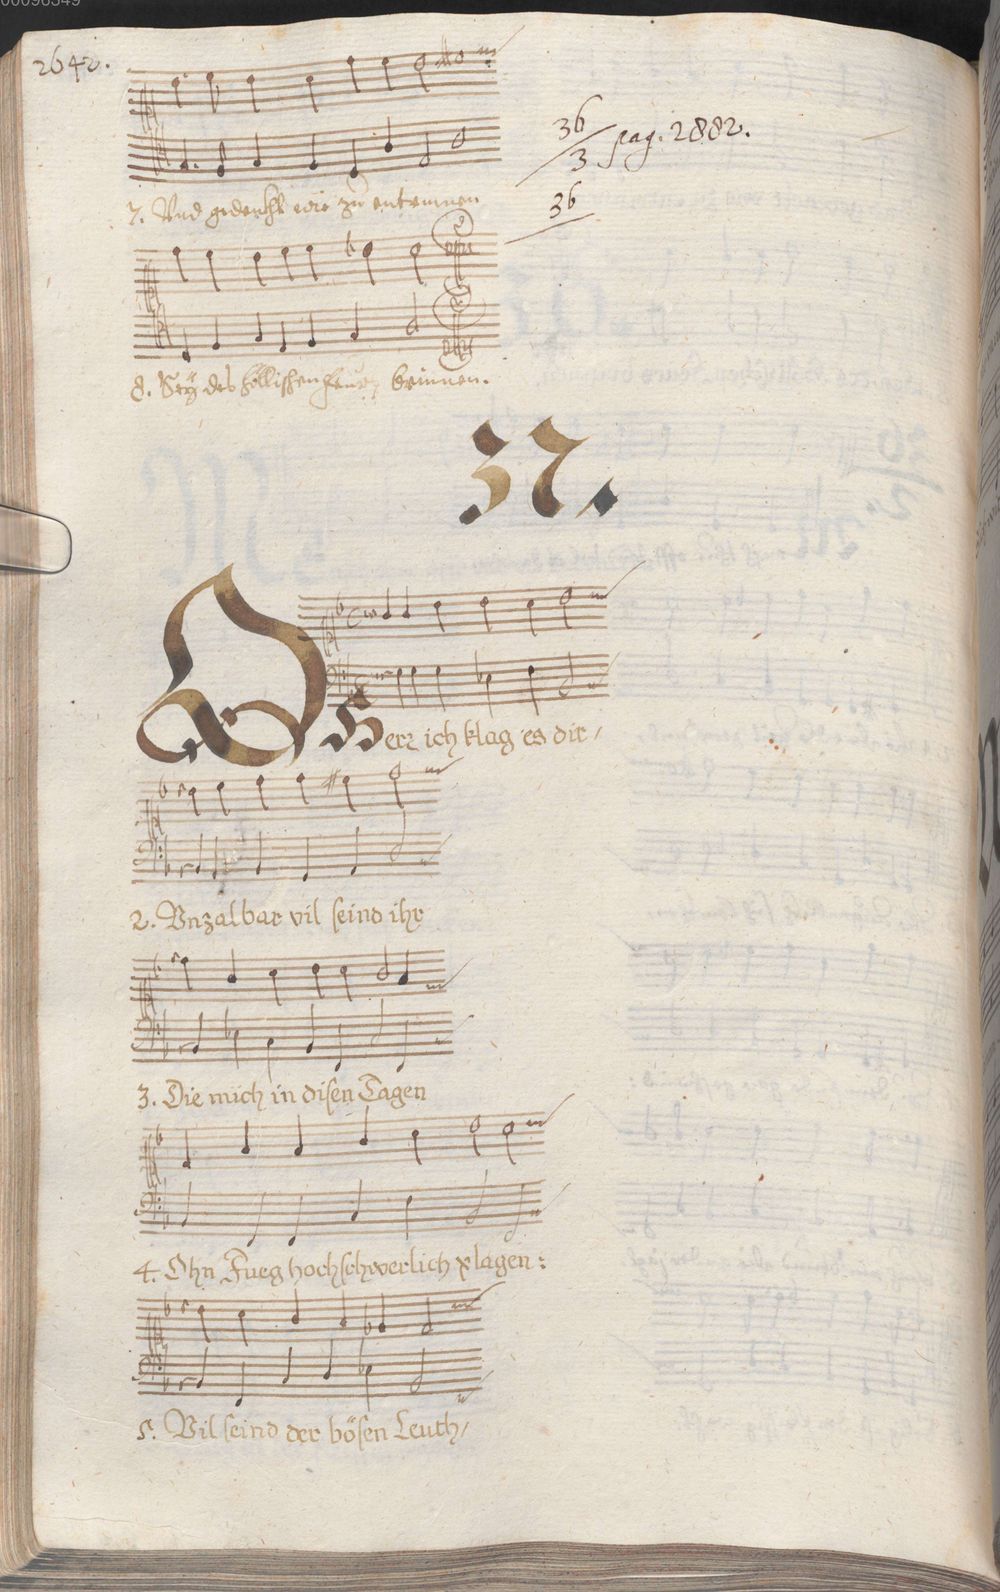 00098349
2642.
36
3 pag. 2882.
36
7. Und gedenckt wie zu entrinnen
8. Sey des höllischen feurs brinnen.
37.
O Herr ich klag es dir /
2. Unzalbar vil seind ihr
3. Die mich in disen Tagen
4. Ohn Fueg hochschwerlich plagen:
5. Vil seind der bösen Leuth /